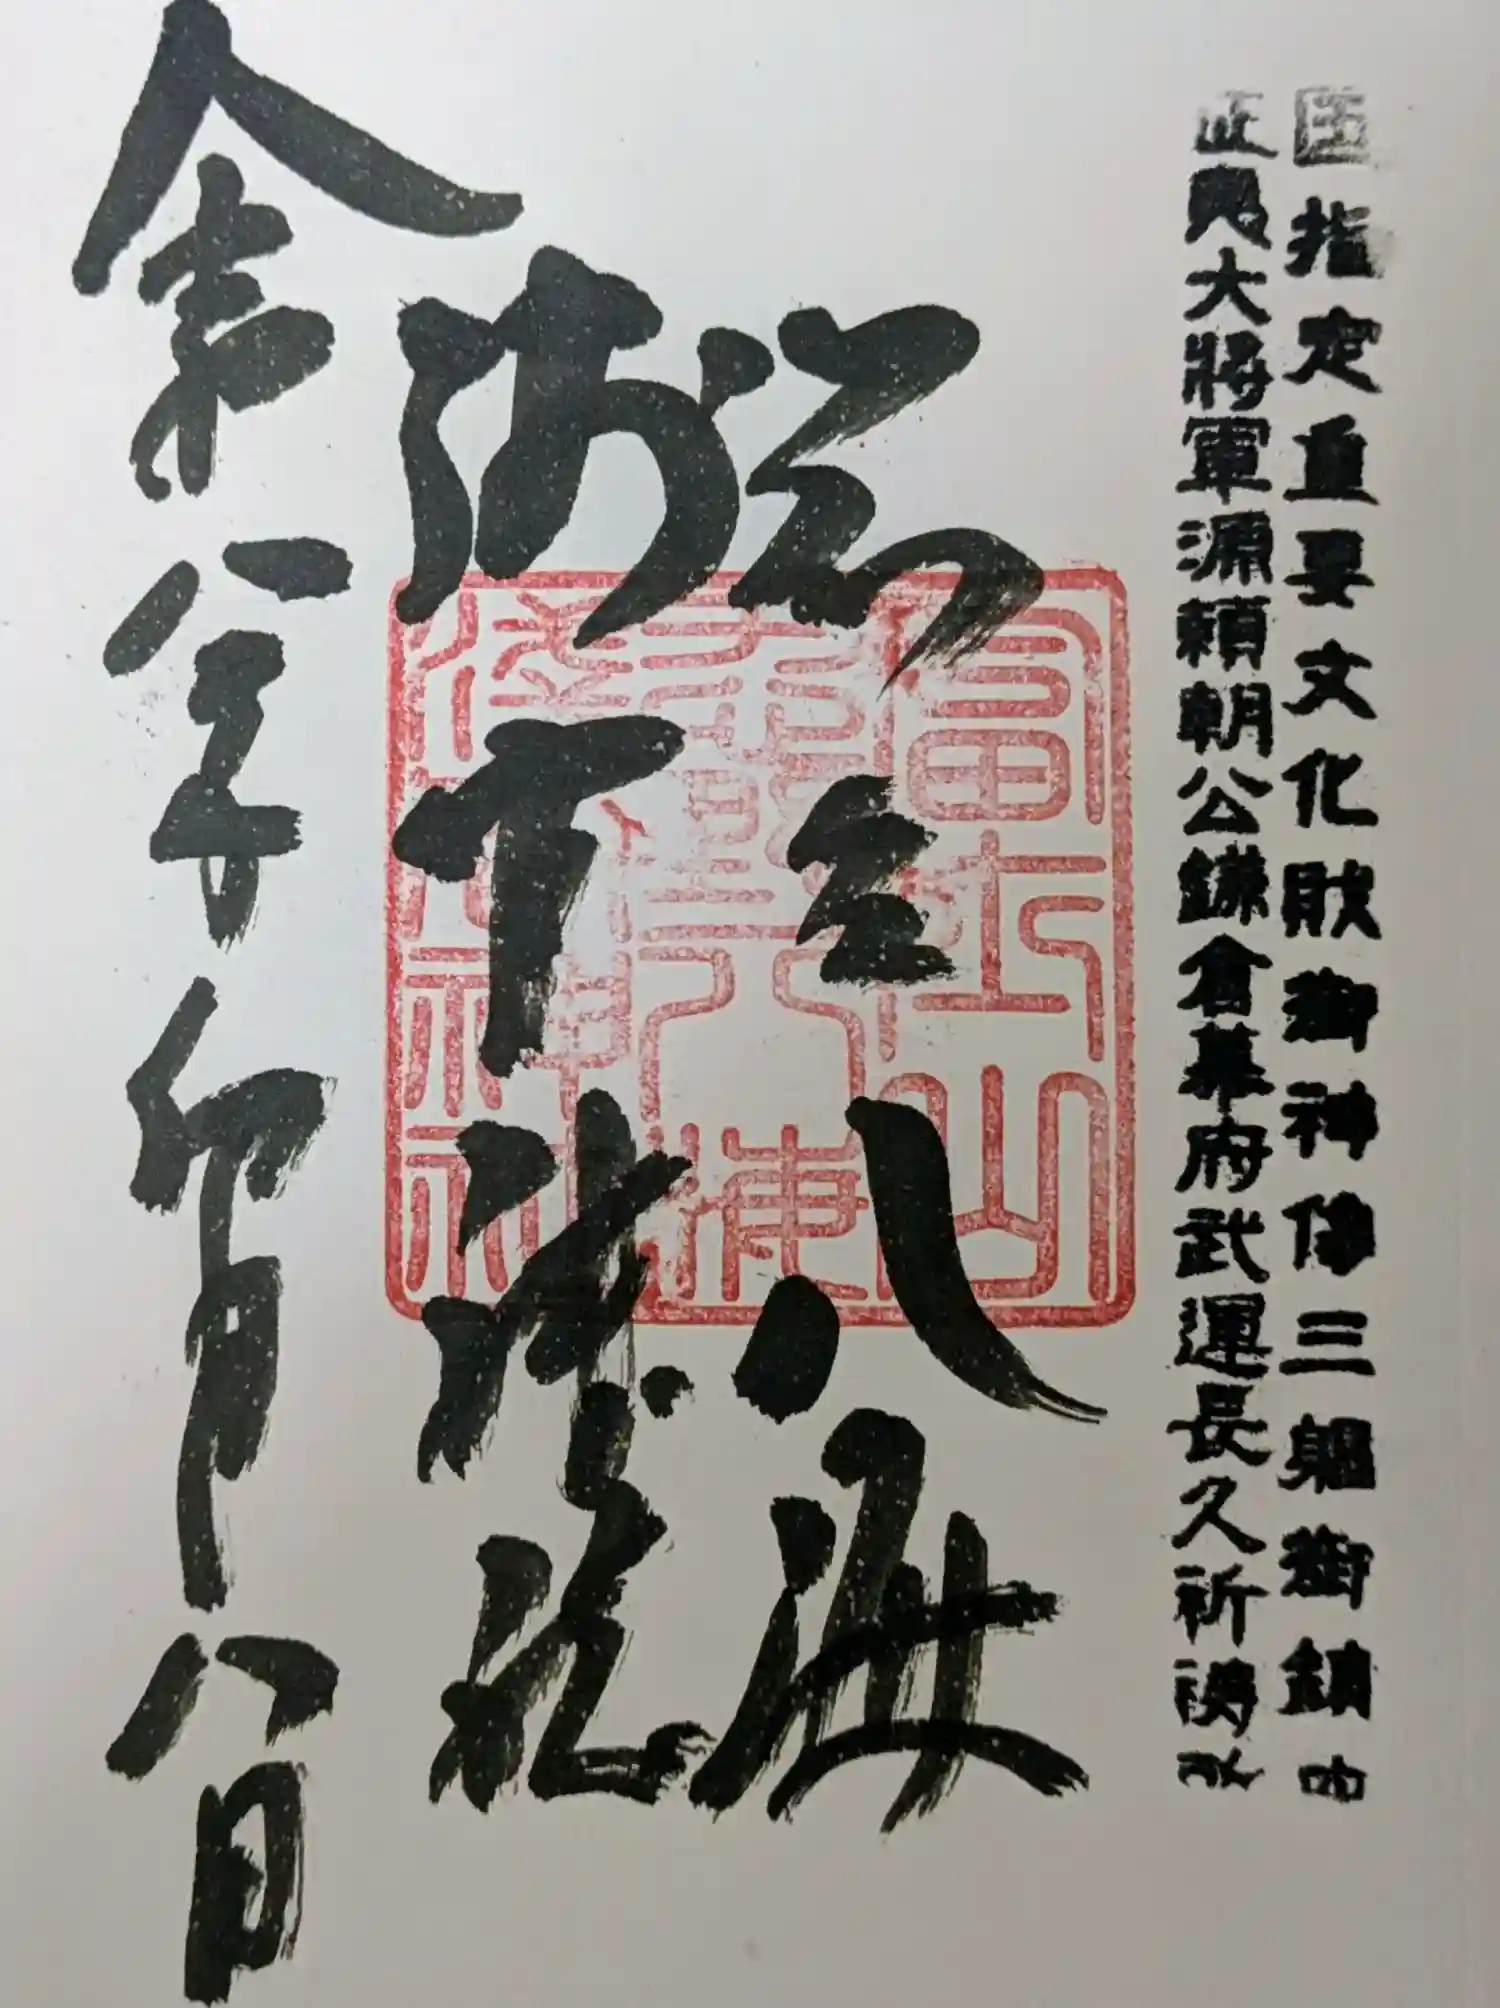 国指定重要文化財御神像三躯御鎮
征夷大将軍源頼朝公鎌倉幕府武運長久祈祷所
忍野八海
浅間神社
令和八年卯月八日
富士山
浅間神社